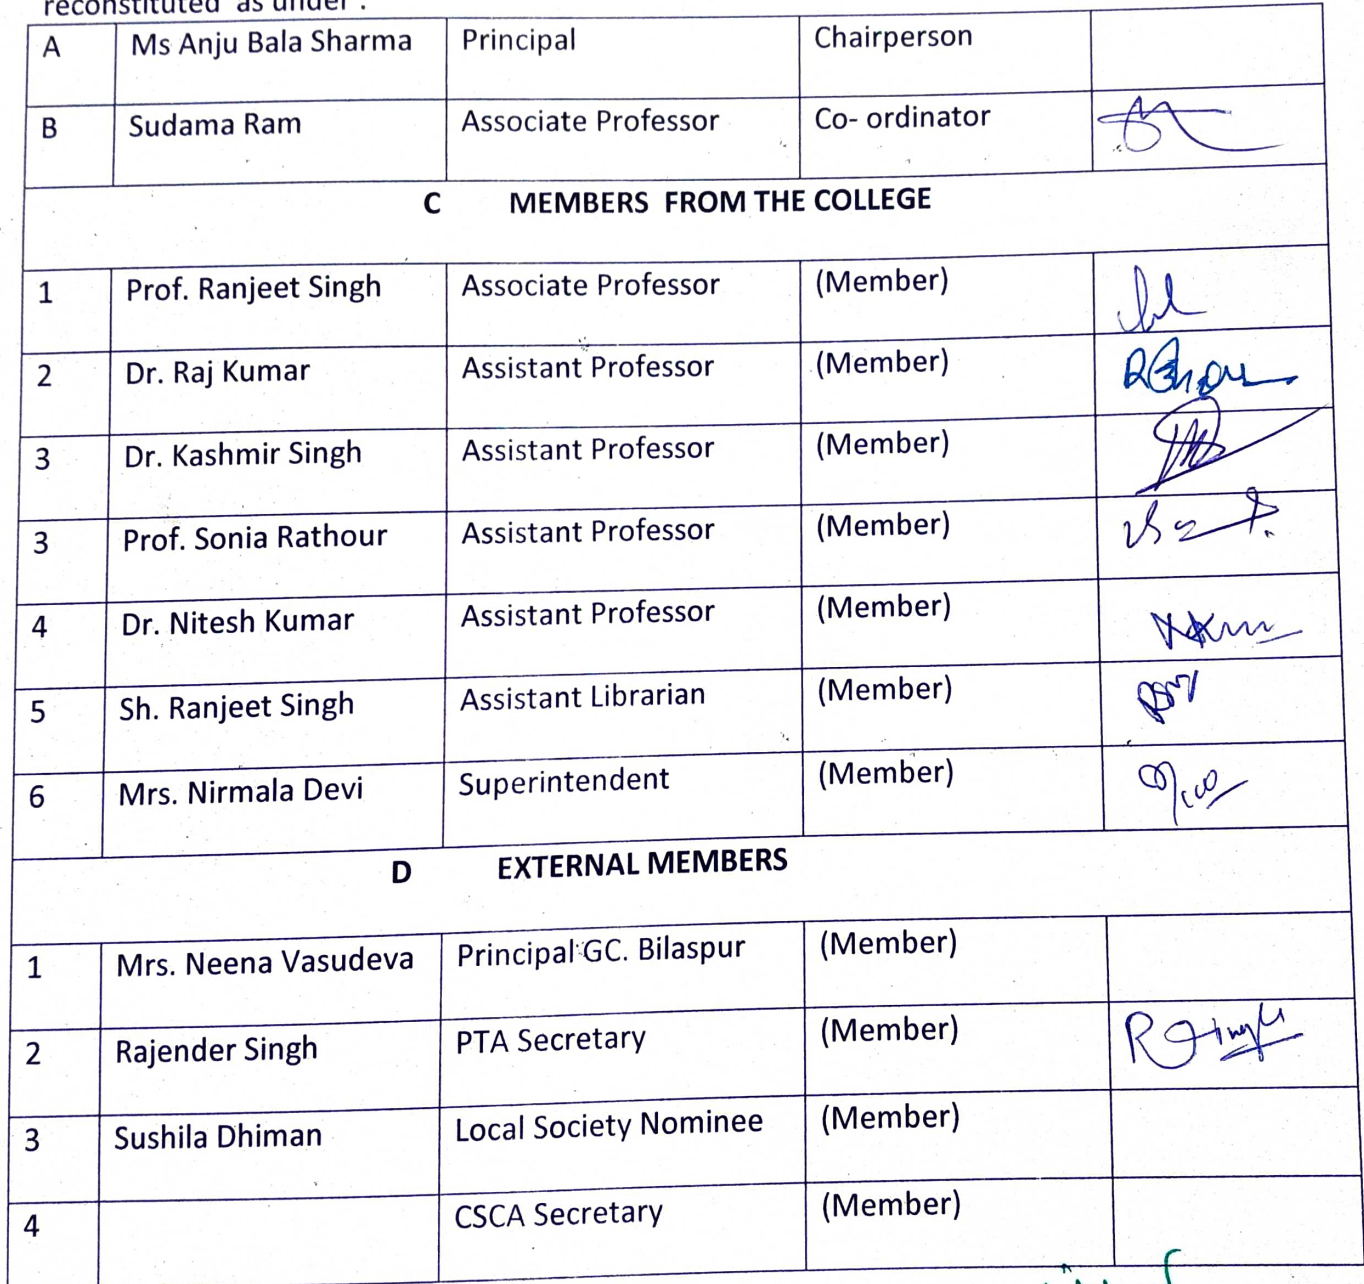 reconstituted as under :
A Ms Anju Bala Sharma Principal Chairperson
B Sudama Ram Associate Professor Co- ordinator
C MEMBERS FROM THE COLLEGE
1 Prof. Ranjeet Singh Associate Professor (Member)
2 Dr. Raj Kumar Assistant Professor (Member)
3 Dr. Kashmir Singh Assistant Professor (Member)
3 Prof. Sonia Rathour Assistant Professor (Member)
4 Dr. Nitesh Kumar Assistant Professor (Member)
5 Sh. Ranjeet Singh Assistant Librarian (Member)
6 Mrs. Nirmala Devi Superintendent (Member)
D EXTERNAL MEMBERS
1 Mrs. Neena Vasudeva Principal GC. Bilaspur (Member)
2 Rajender Singh PTA Secretary (Member) RSingh
3 Sushila Dhiman Local Society Nominee (Member)
4 CSCA Secretary (Member)